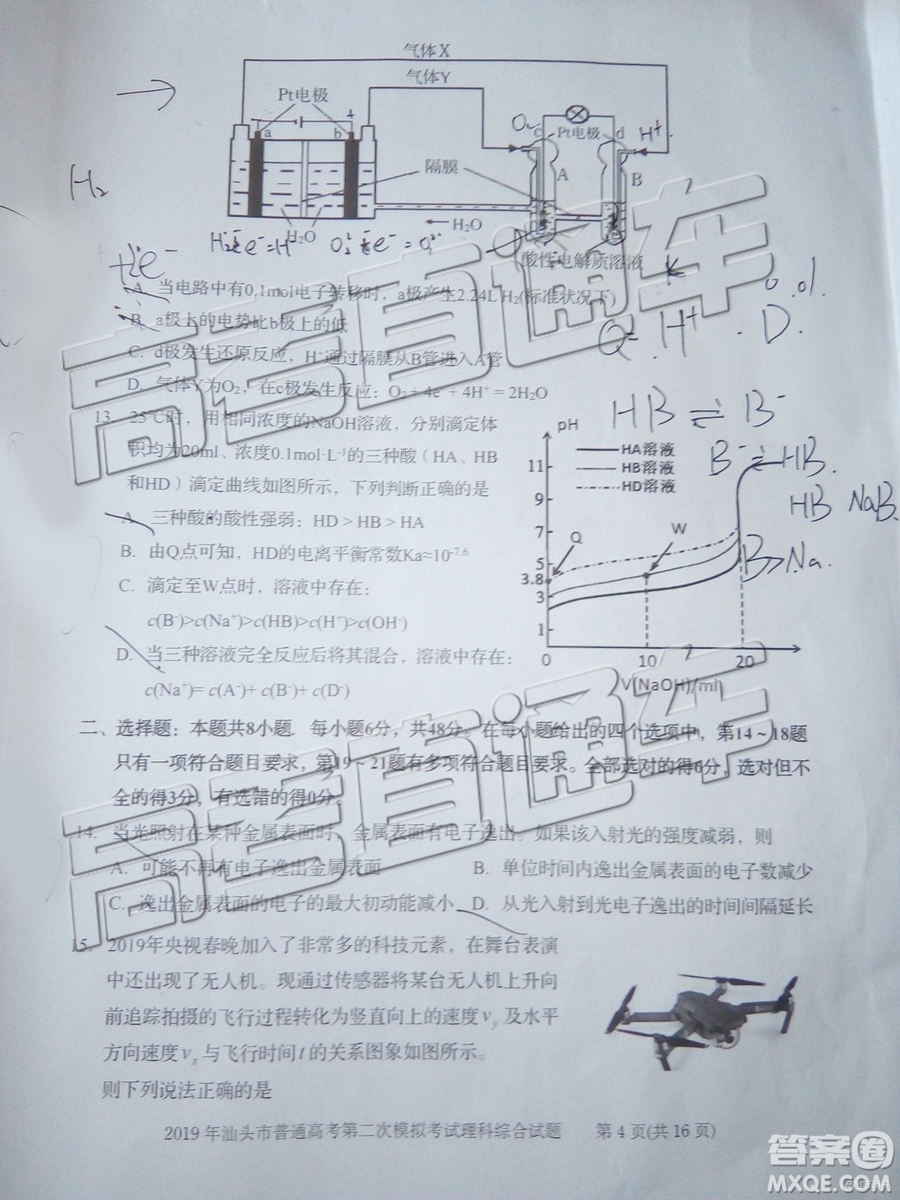 气体X
气体Y
Pt电极
a b
隔膜
H₂O
H₂O
O₂ c Pt电极 d H⁺
A B
酸性电解质溶液
H₂
A. 当电路中有0.1mol电子转移时，a极产生2.24L H₂(标准状况下)
B. a极上的电势比b极上的低
C. d极发生还原反应，H⁺通过隔膜从B管进入A管
D. 气体Y为O₂，在c极发生反应：O₂ + 4e⁻ + 4H⁺ = 2H₂O
13. 25℃时，用相同浓度的NaOH溶液，分别滴定体
积均为20ml、浓度0.1mol·L⁻¹的三种酸（HA、HB
和HD）滴定曲线如图所示，下列判断正确的是
A. 三种酸的酸性强弱：HD > HB > HA
B. 由Q点可知，HD的电离平衡常数Ka≈10⁻⁷·⁶
C. 滴定至W点时，溶液中存在：
c(B⁻)>c(Na⁺)>c(HB)>c(H⁺)>c(OH⁻)
D. 当三种溶液完全反应后将其混合，溶液中存在：
c(Na⁺)= c(A⁻)+ c(B⁻)+ c(D⁻)
HB ⇌ B⁻
B⁻ ⇌ HB.
HB NaB.
B>Na.
pH
HA溶液
HB溶液
HD溶液
11
9
7
5
3.8
3
1
Q
W
0 10 20
V(NaOH)/ml
二、选择题：本题共8小题. 每小题6分，共48分。在每小题给出的四个选项中，第14～18题
只有一项符合题目要求，第19～21题有多项符合题目要求。全部选对的得6分，选对但不
全的得3分，有选错的得0分。
14. 当光照射在某种金属表面时，金属表面有电子逸出。如果该入射光的强度减弱，则
A. 可能不再有电子逸出金属表面 B. 单位时间内逸出金属表面的电子数减少
C. 逸出金属表面的电子的最大初动能减小 D. 从光入射到光电子逸出的时间间隔延长
15. 2019年央视春晚加入了非常多的科技元素，在舞台表演
中还出现了无人机。现通过传感器将某台无人机上升向
前追踪拍摄的飞行过程转化为竖直向上的速度vᵧ及水平
方向速度vₓ与飞行时间t的关系图象如图所示。
则下列说法正确的是
2019年汕头市普通高考第二次模拟考试理科综合试题 第 4 页(共 16 页)
高考直通车
高考直通车
答案圈
MXQE.COM